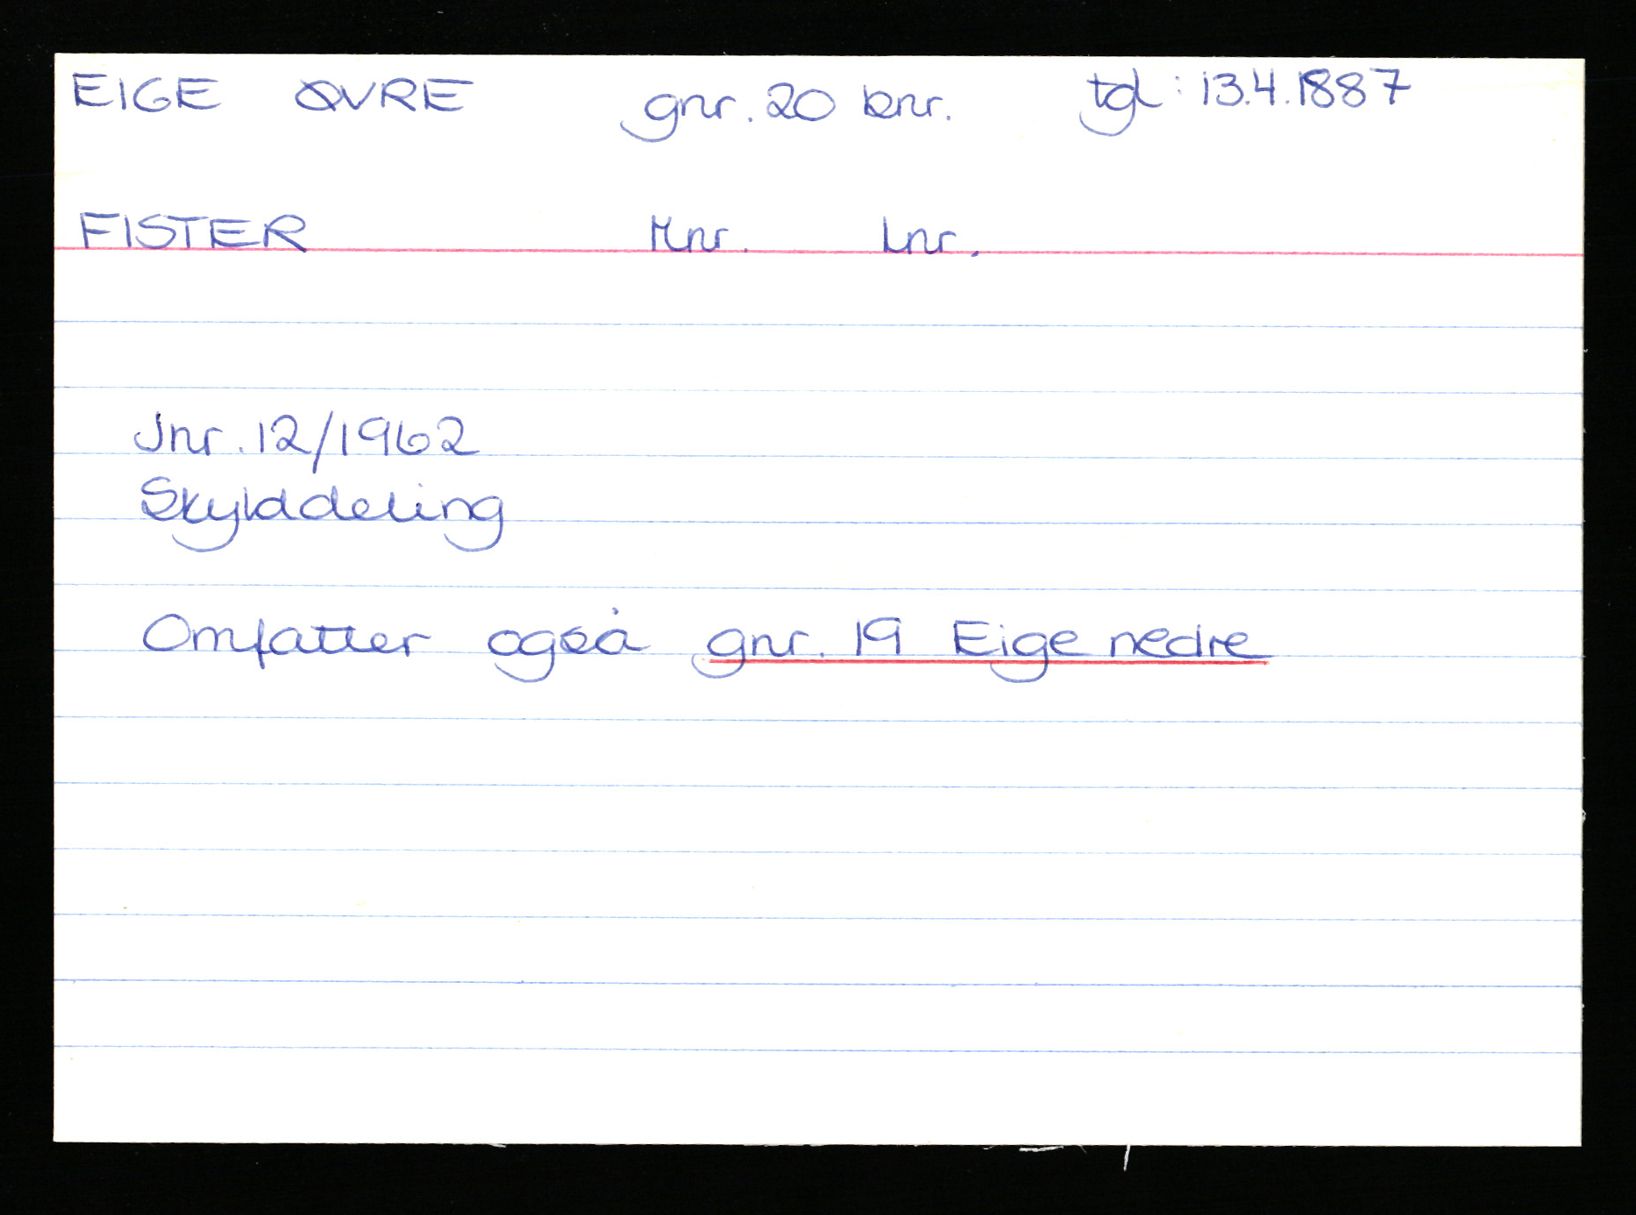 EIGE ØVRE gnr. 20 bnr. tgl: 13.4.1887
FISTER Mnr. Lnr.
Jnr. 12/1962
Skylddeling
Omfatter også gnr. 19 Eige nedre